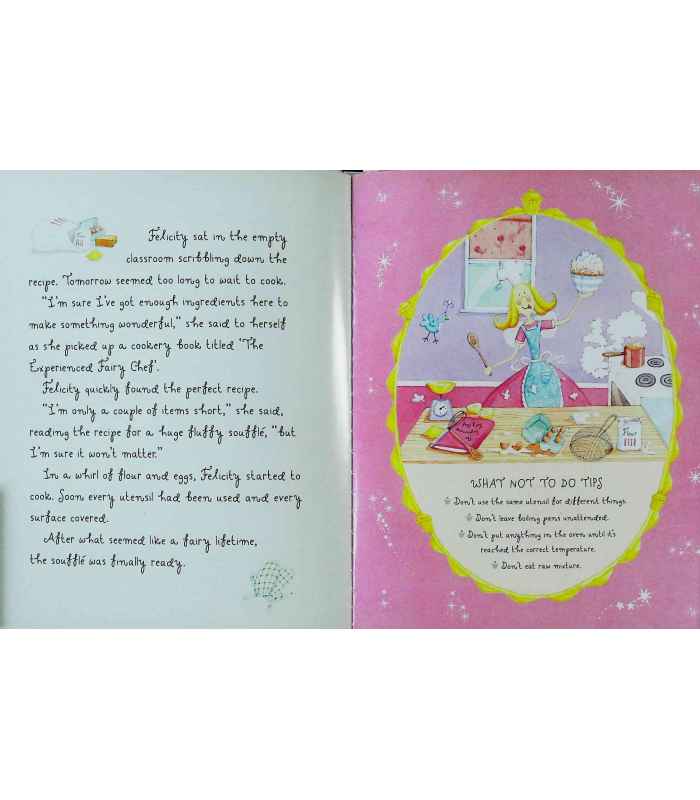 Felicity sat in the empty
classroom scribbling down the
recipe. Tomorrow seemed too long to wait to cook.
"I'm sure I've got enough ingredients here to
make something wonderful," she said to herself
as she picked up a cookery book titled 'The
Experienced Fairy Chef'.
Felicity quickly found the perfect recipe.
"I'm only a couple of items short," she said,
reading the recipe for a huge fluffy soufflé, "but
I'm sure it won't matter."
In a whirl of flour and eggs, Felicity started to
cook. Soon every utensil had been used and every
surface covered.
After what seemed like a fairy lifetime,
the soufflé was finally ready.
Flour
WHAT NOT TO DO TIPS
Don't use the same utensil for different things.
Don't leave boiling pans unattended.
Don't put anything in the oven until it's
reached the correct temperature.
Don't eat raw mixture.